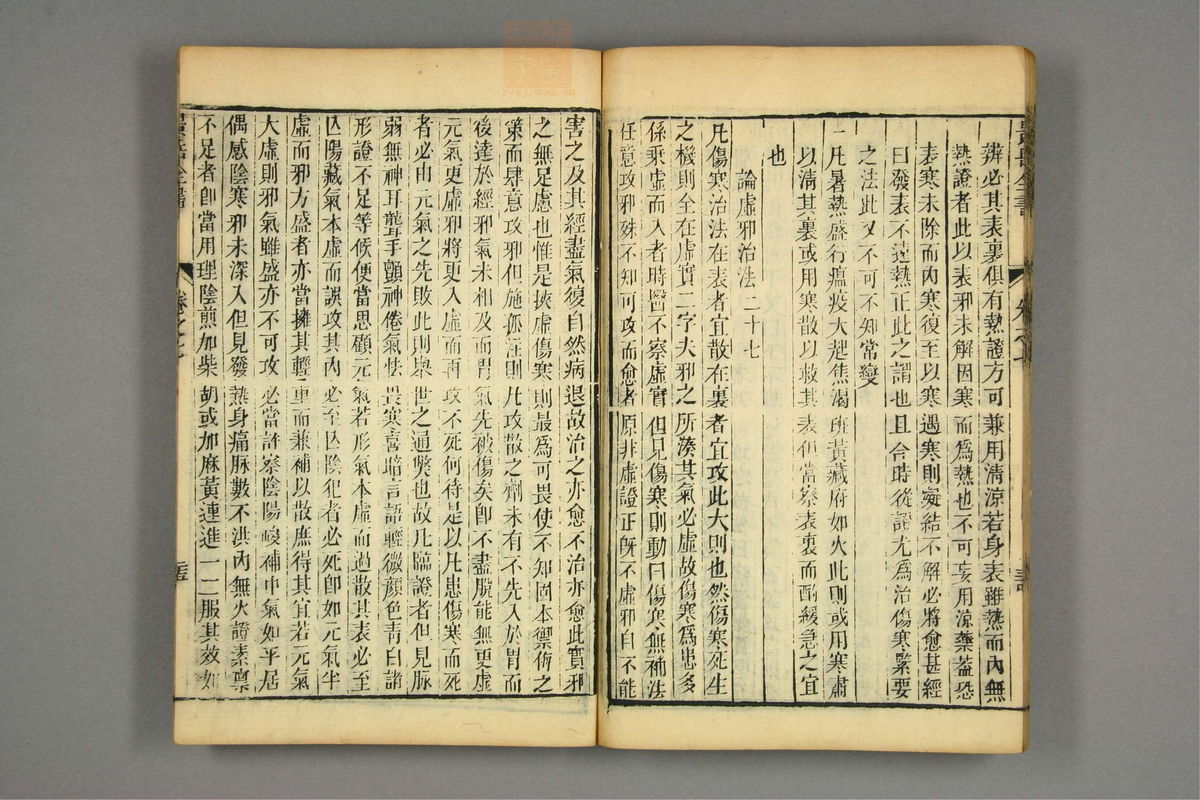 辨必其表裏俱有熱證方可兼用清涼若身表雖熱而內無
熱證者此以表邪未解因寒而爲熱也不可妄用涼藥蓋恐
表寒未除而內寒復至以寒遇寒則凝結不解必將愈甚經
曰發表不遠熱正此之謂也且合時從證尤爲治傷寒緊要
之法此又不可不知常變
一凡暑熱盛行瘟疫大起焦渴班黃藏府如火此則或用寒肅
以清其裏或用寒散以救其表但當察表裏而酌緩急之宜
也
論虛邪治法二十七
凡傷寒治法在表者宜散在裏者宜攻此大則也然傷寒死生
之機則全在虛實二字夫邪之所湊其氣必虛故傷寒爲患多
係乘虛而入者時醫不察虛實但見傷寒則動曰傷寒無補法
任意攻邪殊不知可攻而愈者原非虛證正旣不虛邪自不能
害之及其經盡氣復自然病退故治之亦愈不治亦愈此實邪
之無足慮也惟是挾虛傷寒則最爲可畏使不知固本禦侮之
策而肆意攻邪但施孤注則凡攻散之劑未有不先入於胃而
後達於經邪氣未相及而胃氣先被傷矣卽不盡脫能無更虛
元氣更虛邪將更入虛而再攻不死何待是以凡患傷寒而死
者必由元氣之先敗此則舉世之通獘也故凡臨證者但見脉
弱無神耳聾手顫神倦氣怯畏寒喜暗言語輕微顏色靑白諸
形證不足等候便當思顧元氣若形氣本虛而過散其表必至
亡陽藏氣本虛而誤攻其內必至亡陰犯者必死卽如元氣半
虛而邪方盛者亦當權其輕重而兼補以散庶得其宜若元氣
大虛則邪氣雖盛亦不可攻必當詳察陰陽峻補中氣如平居
偶感陰寒邪未深入但見發熱身痛脉數不洪內無火證素禀
不足者卽當用理陰煎加柴胡或加麻黃連進一二服其效如
景岳全書
卷之七